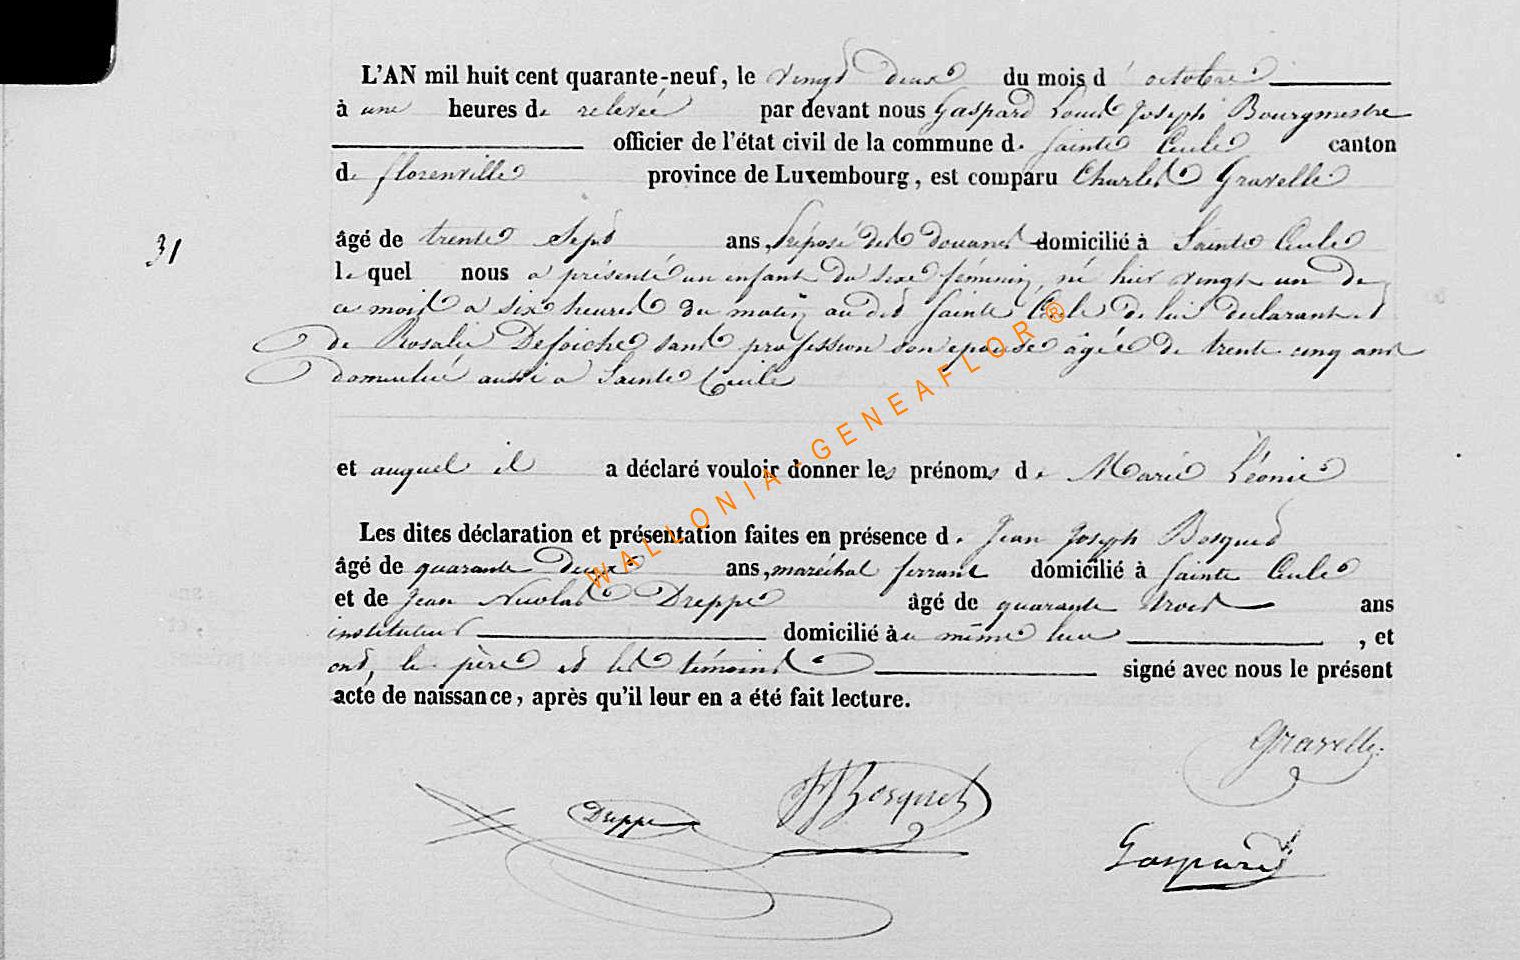 L'AN mil huit cent quarante-neuf, le vingt deux du mois d' octobre
à une heures de relevée par devant nous Gaspard Louis Joseph Bourgmestre
officier de l'état civil de la commune de Sainte Cecile canton
de florenville province de Luxembourg, est comparu Charles Gravelle
31
âgé de trente sept ans, Préposé des douanes domicilié à Sainte Cecile
le quel nous a présenté un enfant du sexe féminin, né hier vingt un de
ce mois a six heures du matin au dit Sainte Cecile de lui declarant et
de Rosalie Defoiche sans profession son epouse âgée de trente cinq ans
domiciliée aussi a Sainte Cecile
et auquel il a déclaré vouloir donner les prénoms de Marie Léonie
Les dites déclaration et présentation faites en présence de Jean Joseph Bosquet
âgé de quarante deux ans, maréchal ferrant domicilié à Sainte Cecile
et de Jean Nicolas Dreppe âgé de quarante trois ans
instituteur domicilié à ce même lieu , et
ont, le père et les témoins signé avec nous le présent
acte de naissance, après qu'il leur en a été fait lecture.
Gravelle
Dreppe JJBosquet
Gaspard
WALLONIA-GENEAFLOR®